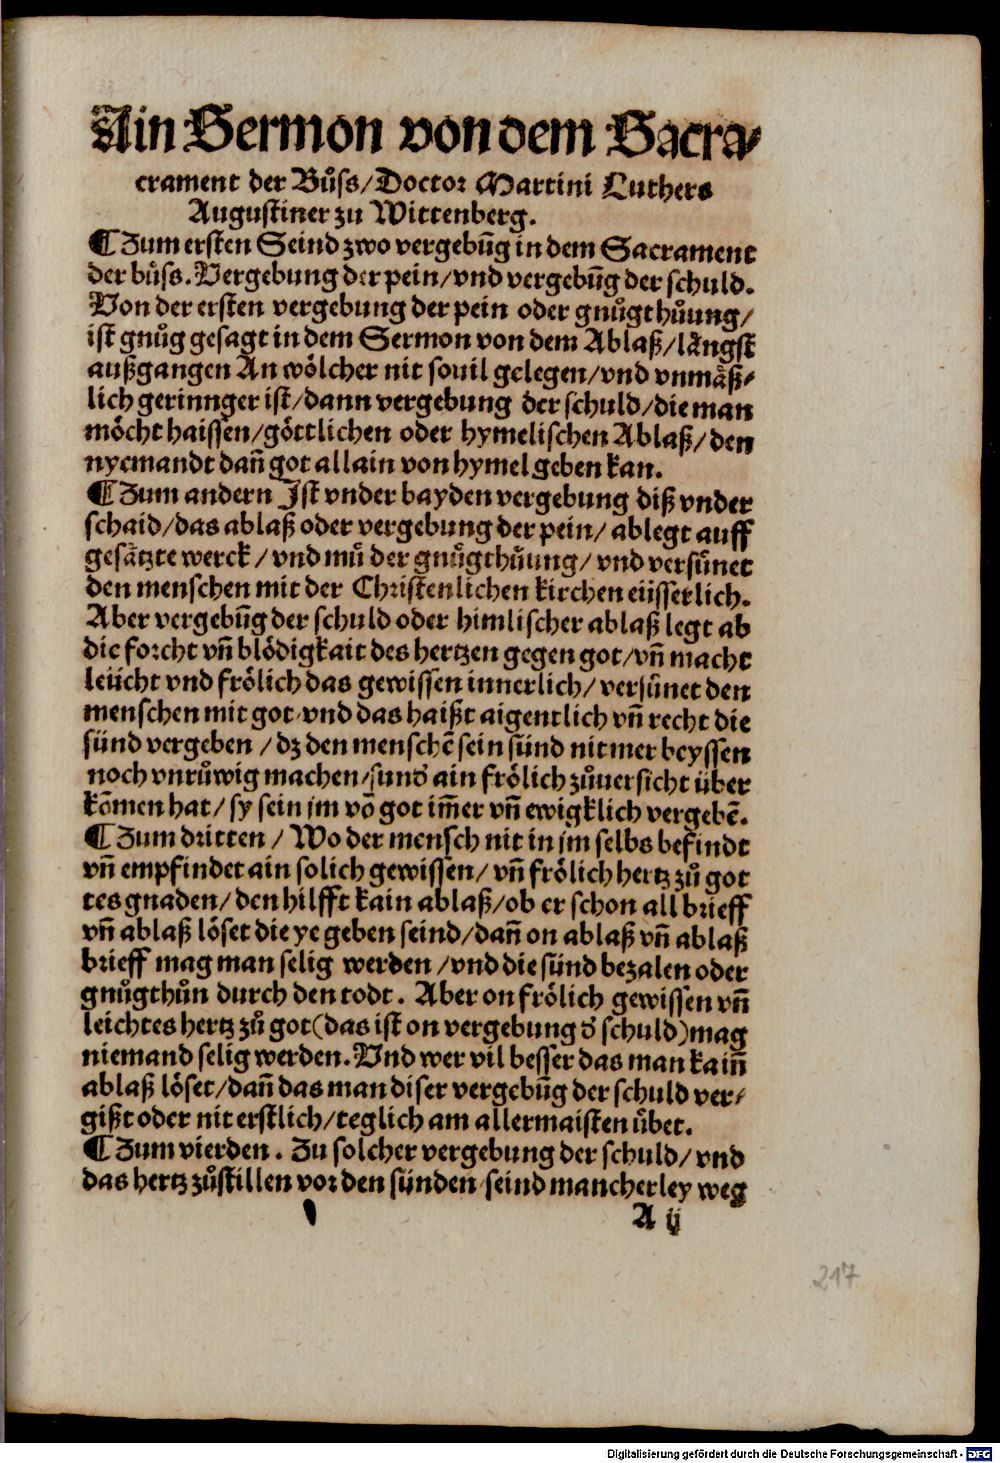 Ain Sermon von dem Sacra⸗
crament der Bůſs/Doctor Martini Luthers
Auguſtiner zu Wittenberg.
¶Zum erſten Seind zwo vergebūg in dem Sacrament
der bůſs. Vergebung der pein/vnd vergebūg der ſchuld.
Von der erſten vergebung der pein oder gnůgthůung/
iſt gnůg geſagt in dem Sermon von dem Ablaß/lāngſt
außgangen An wölcher nit ſouil gelegen/vnd vnmåß⸗
lich gerinnger iſt/dann vergebung der ſchuld/die man
möcht haiſſen/göttlichen oder hymeliſchen Ablaß/den
nyemandt dañ got allain von hymel geben kan.
¶Zum andern Iſt vnder bayden vergebung diß vnder
ſchaid/das ablaß oder vergebung der pein/ablegt auff
geſåtzte werck/vnd mů der gnůgthůung/vnd verſůnet
den menſchen mit der Chriſtenlichen kirchen eüſſerlich.
Aber vergebūg der ſchuld oder himliſcher ablaß legt ab
die forcht vñ blödigkait des hertzen gegen got/vñ macht
leücht vnd frölich das gewiſſen innerlich/verſůnet den
menſchen mit got/vnd das haißt aigentlich vñ recht die
ſünd vergeben/dz den menſchē ſein ſünd nit mer beyſſen
noch vnrůwig machen/ſund̕ ain frölich zůuerſicht über
kōmen hat/ſy ſein jm vō got im̄er vñ ewigklich vergebē.
¶Zum dritten/Wo der menſch nit in jm ſelbs befindt
vñ empfindet ain ſolich gewiſſen/vñ frölich hertz zů got
tes gnaden/den hilfft kain ablaß/ob er ſchon all brieff
vñ ablaß löſet die ye geben ſeind/dañ on ablaß vñ ablaß
brieff mag man ſelig werden/vnd die ſünd bezalen oder
gnůgthůn durch den todt. Aber on frölich gewiſſen vñ
leichtes hertz zů got(das iſt on vergebung d̕ ſchuld)mag
niemand ſelig werden. Vnd wer vil beſſer das man kaiñ
ablaß löſet/dañ das man diſer vergebūg der ſchuld ver⸗
gißt oder nit erſtlich/teglich am allermaiſten ůbet.
¶Zum vierden. Zu ſolcher vergebung der ſchuld/vnd
das hertz zůſtillen vor den ſünden/ſeind mancherley weg
A ij
217
Digitalisierung gefördert durch die Deutsche Forschungsgemeinschaft - DFG